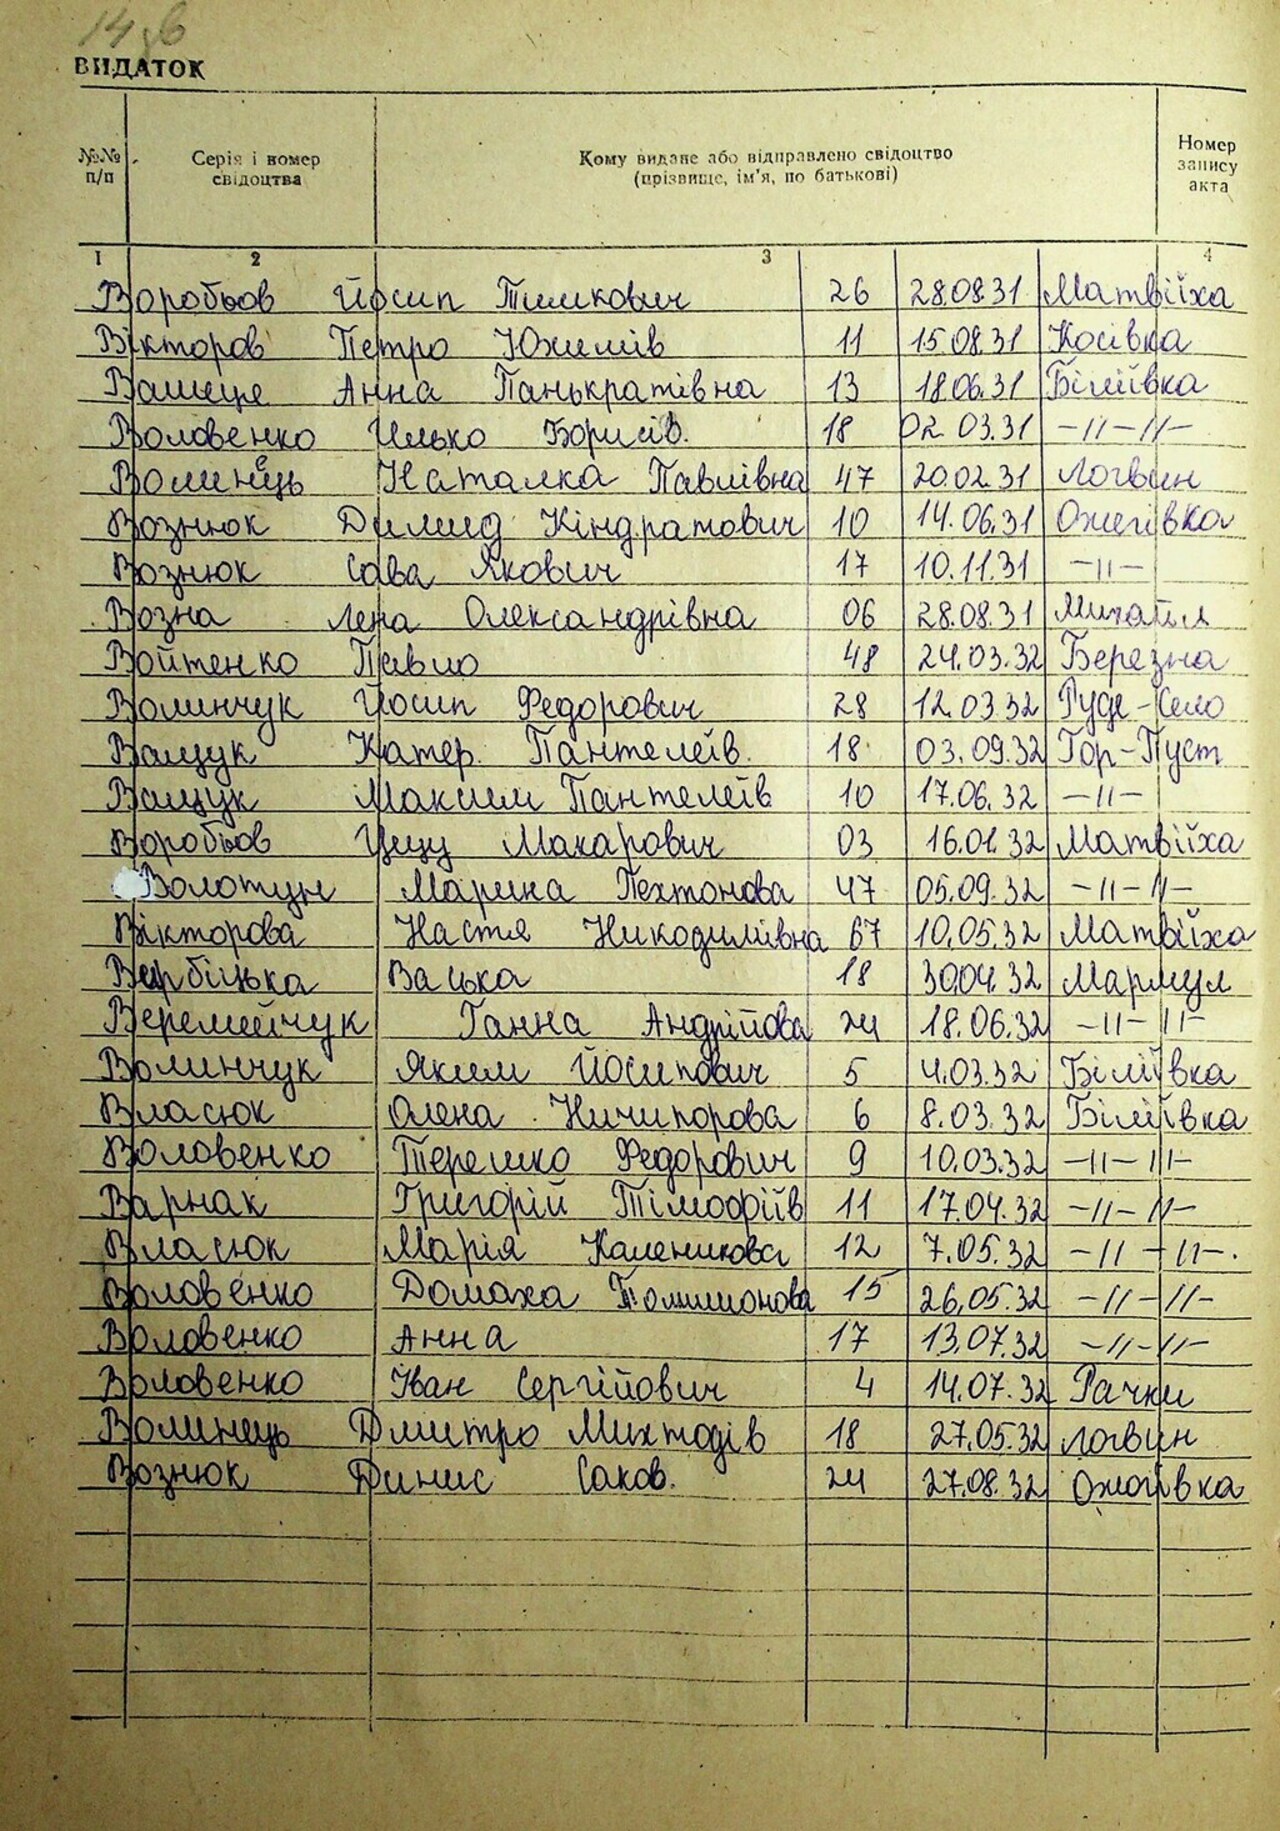 14зв
ВИДАТОК
№№ п/п Серія і номер свідоцтва Кому видане або відправлено свідоцтво (прізвище, ім'я, по батькові) Номер запису акта
1 2 3 4
Воробьов Йосип Тимкович 26 28.08.31 Матвіїха
Вікторов Петро Юхимів 11 15.08.31 Косівка
Анна Панькратівна 13 18.06.31 Біліївка
Воловенко Илько Борисів. 18 02.03.31 -//-//-
Волинець Наталка Павлівна 47 20.02.31 Логвин
Вознюк Дилид Кіндратович 10 14.06.31 Ожегівка
Вознюк Сава Якович 17 10.11.31 -//-
Возна Лена Олександрівна 06 28.08.31
Войтенко Павло 48 24.03.32 Березна
Волинчук Йосип Федорович 28 12.03.32 Руде-Село
Ващук Катер. Пантелеїв. 18 03.09.32 Гор-Пуст
Ващук Максим Пантелеїв 10 17.06.32 -//-
Воробьов Макарович 03 16.01.32 Матвіїха
Волотун Марина Пехтонова 47 05.09.32 -//-//-
Вікторова Настя Никодимівна 67 10.05.32 Матвіїха
Вербіцька Васька 18 30.04.32 Мармул
Веремейчук Ганна Андрійова 24 18.06.32 -//-//-
Волинчук Яким Йосипович 5 4.03.32 Біліївка
Власюк Олена Ничипорова 6 8.03.32 Біліївка
Воловенко Терешко Федорович 9 10.03.32 -//-//-
Варнак Григорій Тімофіїв 11 17.04.32 -//-//-
Власюк Марія Каленикова 12 7.05.32 -//-//-.
Воловенко Домаха 15 26.05.32 -//-//-
Воловенко Анна 17 13.07.32 -//-//-
Воловенко Іван Сергійович 4 14.07.32 Рачки
Волинець Дмитро Михтодів 18 27.05.32 Логвин
Вознюк Динис Саков. 24 27.08.32 Ожогівка